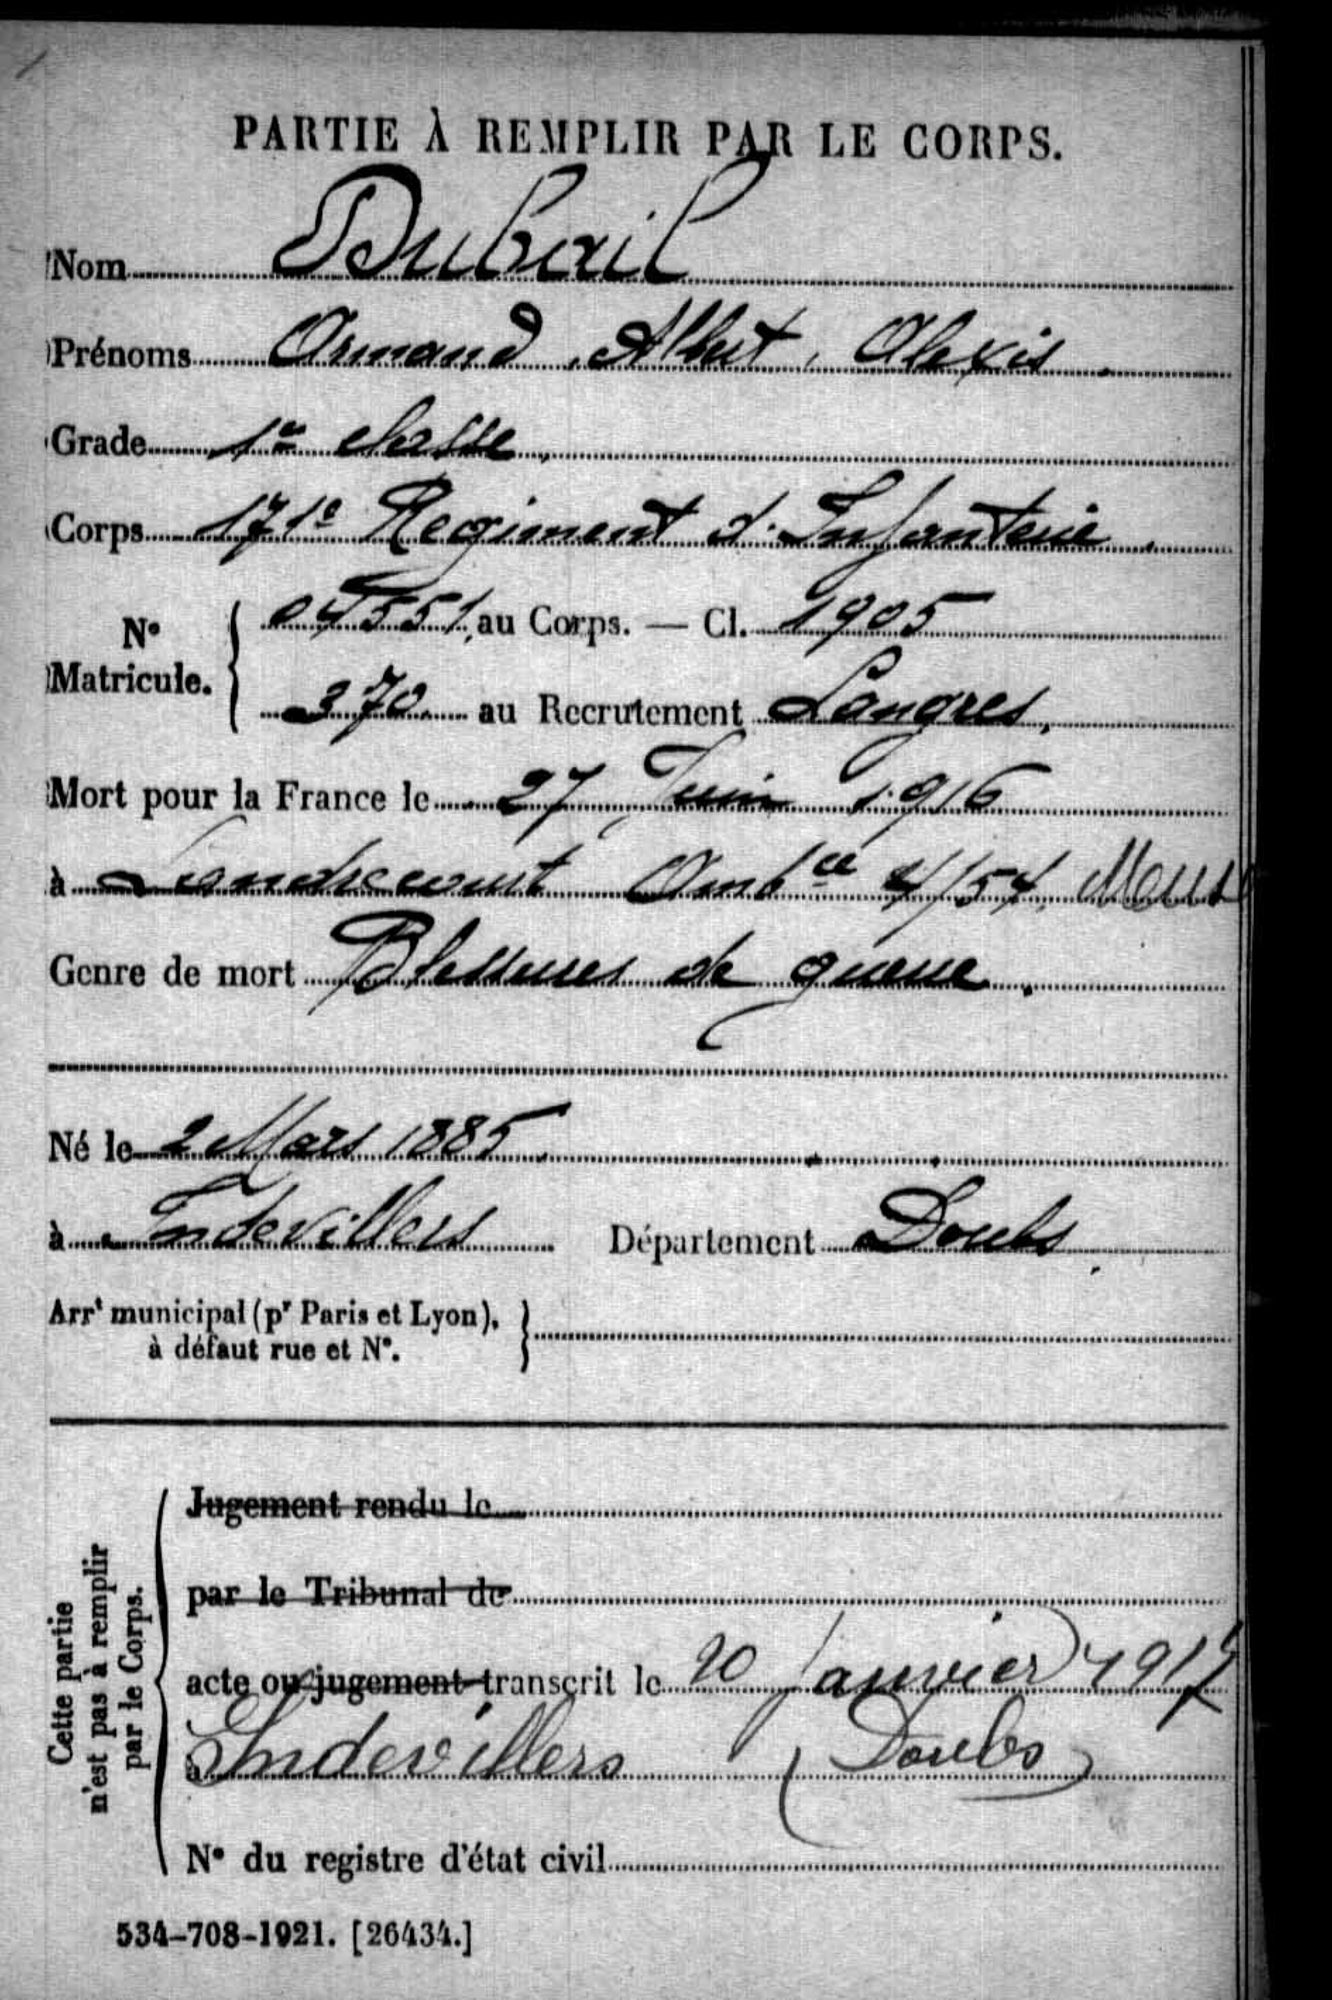 PARTIE À REMPLIR PAR LE CORPS.
Nom Dubail
Prénoms Armand, Albert, Alexis.
Grade 1re classe.
Corps 171e Régiment d'Infanterie.
N° Matricule. { 04551 au Corps. — Cl. 1905
370 au Recrutement Langres.
Mort pour la France le 27 Juin 1916
à Landrecourt Ambce 4/54, Meuse
Genre de mort Blessures de guerre.
Né le 2 Mars 1885
à Indevillers Département Doubs.
Arrt municipal (pr Paris et Lyon), }
à défaut rue et N°.
Cette partie
n'est pas à remplir
par le Corps.
Jugement rendu le
par le Tribunal de
acte ou jugement transcrit le 20 janvier 1917
à Indevillers (Doubs)
N° du registre d'état civil
534-708-1921. [26434.]